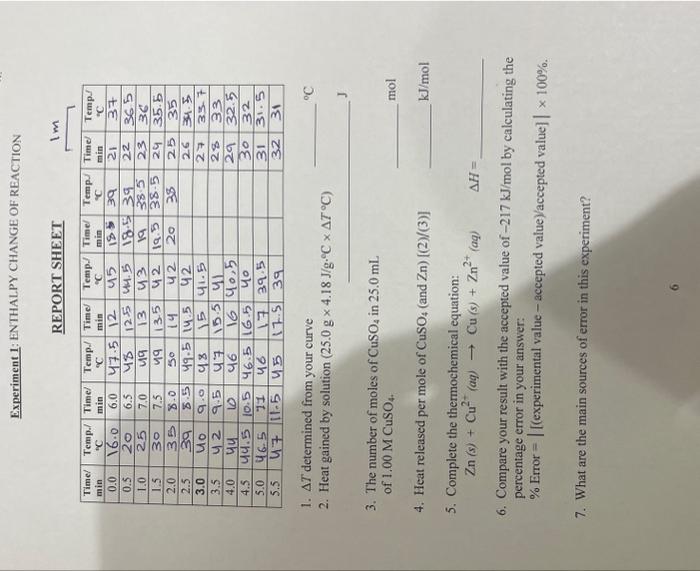 Experiment 1: ENTHALPY CHANGE OF REACTION
REPORT SHEET
1m
Time/ min Temp./ °C Time/ min Temp./ °C Time/ min Temp./ °C Time/ min Temp./ °C Time/ min Temp./ °C
0.0 16.0 6.0 47.5 12 45 39 21 37
0.5 20 6.5 48 12.5 44.5 18.5 39 22 36.5
1.0 25 7.0 49 13 43 19 38.5 23 36
1.5 30 7.5 49 13.5 42 19.5 38.5 24 35.5
2.0 35 8.0 50 14 42 20 38 25 35
2.5 39 8.5 49.5 14.5 42 26 34.5
3.0 40 9.0 48 15 41.5 27 33.7
3.5 42 9.5 47 15.5 41 28 33
4.0 44 10 46 16 40.5 29 32.5
4.5 44.5 10.5 46.5 16.5 40 30 32
5.0 46.5 11 46 17 39.5 31 31.5
5.5 47 11.5 45 17.5 39 32 31
1. ΔT determined from your curve °C
2. Heat gained by solution (25.0 g × 4.18 J/g·°C × ΔT°C)
J
3. The number of moles of CuSO₄ in 25.0 mL
of 1.00 M CuSO₄. mol
4. Heat released per mole of CuSO₄ (and Zn) [(2)/(3)] kJ/mol
5. Complete the thermochemical equation:
Zn (s) + Cu²⁺ (aq) → Cu (s) + Zn²⁺ (aq) ΔH =
6. Compare your result with the accepted value of –217 kJ/mol by calculating the
percentage error in your answer:
% Error = | [(experimental value – accepted value)/accepted value] | × 100%.
7. What are the main sources of error in this experiment?
6